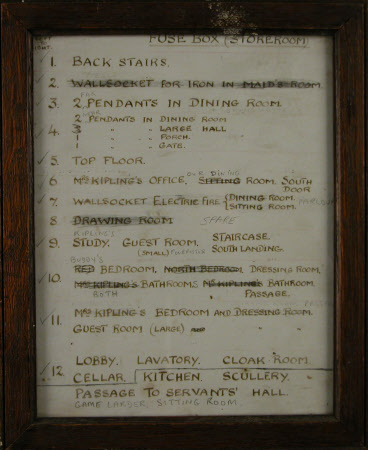 FUSE BOX (STOREROOM)
1. BACK STAIRS.
2. WALLSOCKET FOR IRON IN MAID'S ROOM
3. 2 PENDANTS IN DINING ROOM.
2 PENDANTS IN DINING ROOM
4. 3 " " LARGE HALL
1 " " PORCH.
1 " " GATE.
5. TOP FLOOR.
ONE DINING
6. MRS KIPLING'S OFFICE, SITTING ROOM. SOUTH DOOR
7. WALLSOCKET ELECTRIC FIRE { DINING ROOM.
SITTING ROOM.
8. DRAWING ROOM SPARE
KIPLING'S
9. STUDY. GUEST ROOM. STAIRCASE.
(SMALL) SOUTH LANDING.
10. RED BEDROOM, NORTH BEDROOM DRESSING ROOM,
MRS KIPLING'S BATHROOMS MRS KIPLING'S BATHROOM
BOTH PASSAGE.
11. MRS KIPLING'S BEDROOM AND DRESSING ROOM.
GUEST ROOM (LARGE)
LOBBY. LAVATORY. CLOAK ROOM.
12. CELLAR. KITCHEN. SCULLERY.
PASSAGE TO SERVANTS' HALL.
GAME LARDER, SITTING ROOM